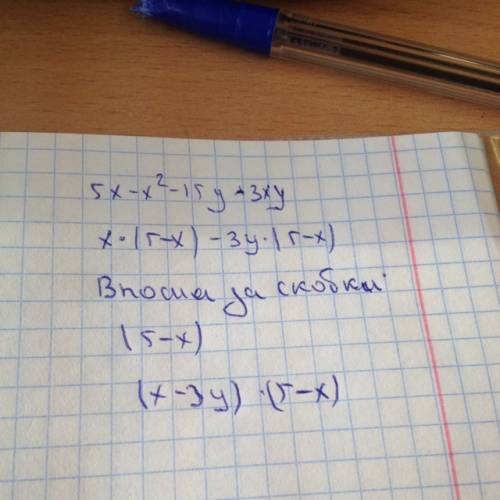 5x-x²-15y-3xy
x·(5-x)-3y·(5-x)
за скобки
(5-x)
(x-3y)·(5-x)